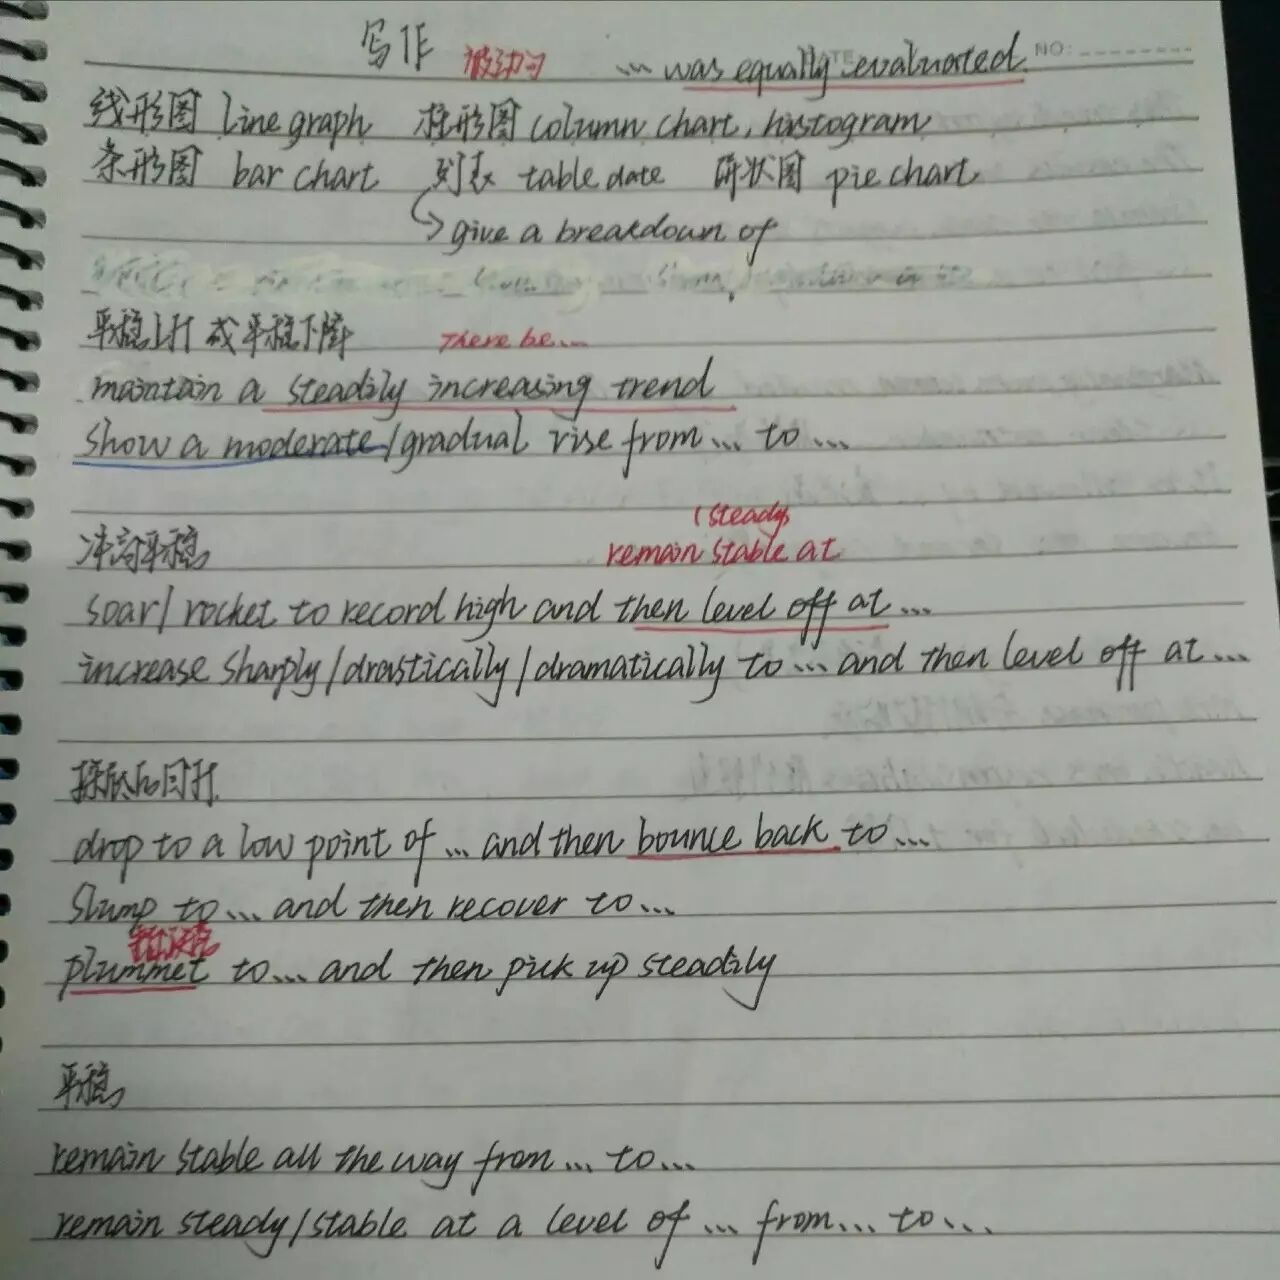 写作 被动句 ... was equally evaluated
NO:
线形图 line graph 柱形图 column chart, histogram
条形图 bar chart 列表 table date 饼状图 pie chart
give a breakdown of
平稳上升 或平稳下降 There be...
maintain a steadily increasing trend
show a moderate/gradual rise from... to...
(steady
冲高平稳 remain stable at
soar/rocket to record high and then level off at...
increase sharply/drastically/dramatically to... and then level off at...
探底后回升
drop to a low point of ... and then bounce back to...
Slump to... and then recover to...
plummet to... and then pick up steadily
平稳
remain stable all the way from... to...
remain steady/stable at a level of ... from... to...